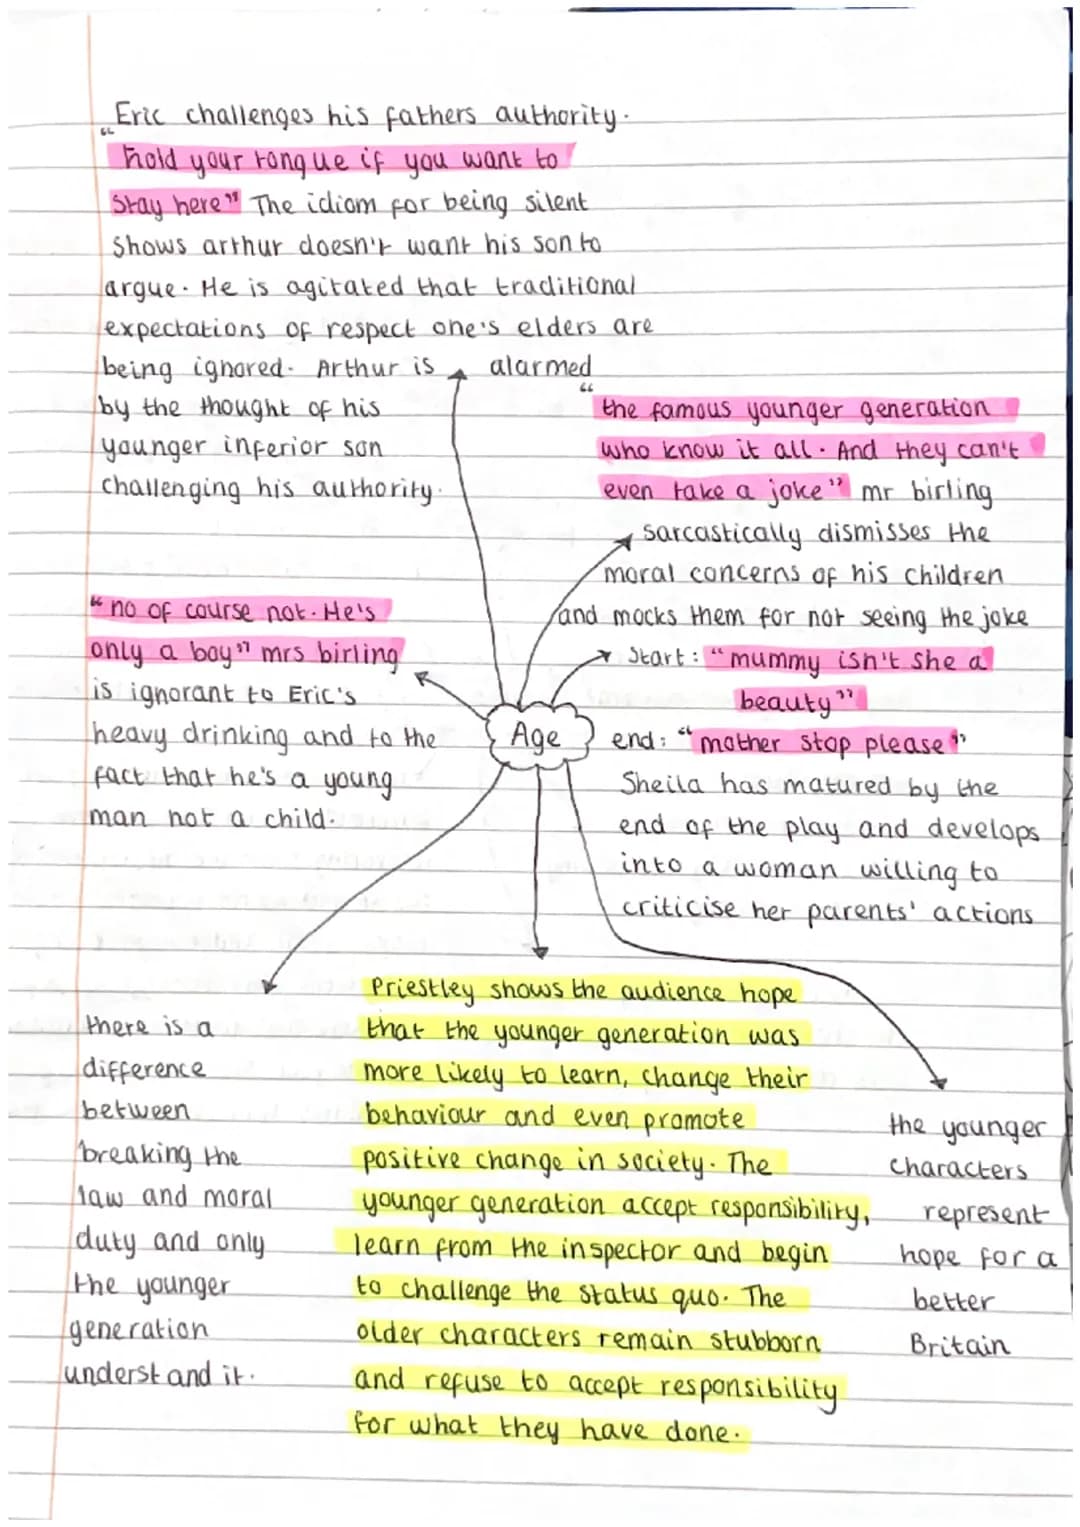 Eric challenges his fathers authority.
"hold your tongue if you want to
stay here" The idiom for being silent
shows arthur doesn't want his son to
argue. He is agitated that traditional
expectations of respect one's elders are
being ignored. Arthur is alarmed
by the thought of his
younger inferior son
challenging his authority.
"the famous younger generation
who know it all. And they can't
even take a joke" mr birling
sarcastically dismisses the
moral concerns of his children
and mocks them for not seeing the joke
"no of course not. He's
only a boy" mrs birling
is ignorant to Eric's
heavy drinking and to the
fact that he's a young
man not a child.
Age
Start: "mummy isn't she a
beauty"
end: "mother stop please"
Sheila has matured by the
end of the play and develops
into a woman willing to
criticise her parents' actions
there is a
difference
between
breaking the
law and moral
duty and only
the younger
generation
understand it.
Priestley shows the audience hope
that the younger generation was
more likely to learn, change their
behaviour and even promote
positive change in society. The
younger generation accept responsibility,
learn from the inspector and begin
to challenge the status quo. The
older characters remain stubborn
and refuse to accept responsibility
for what they have done.
the younger
characters
represent
hope for a
better
Britain